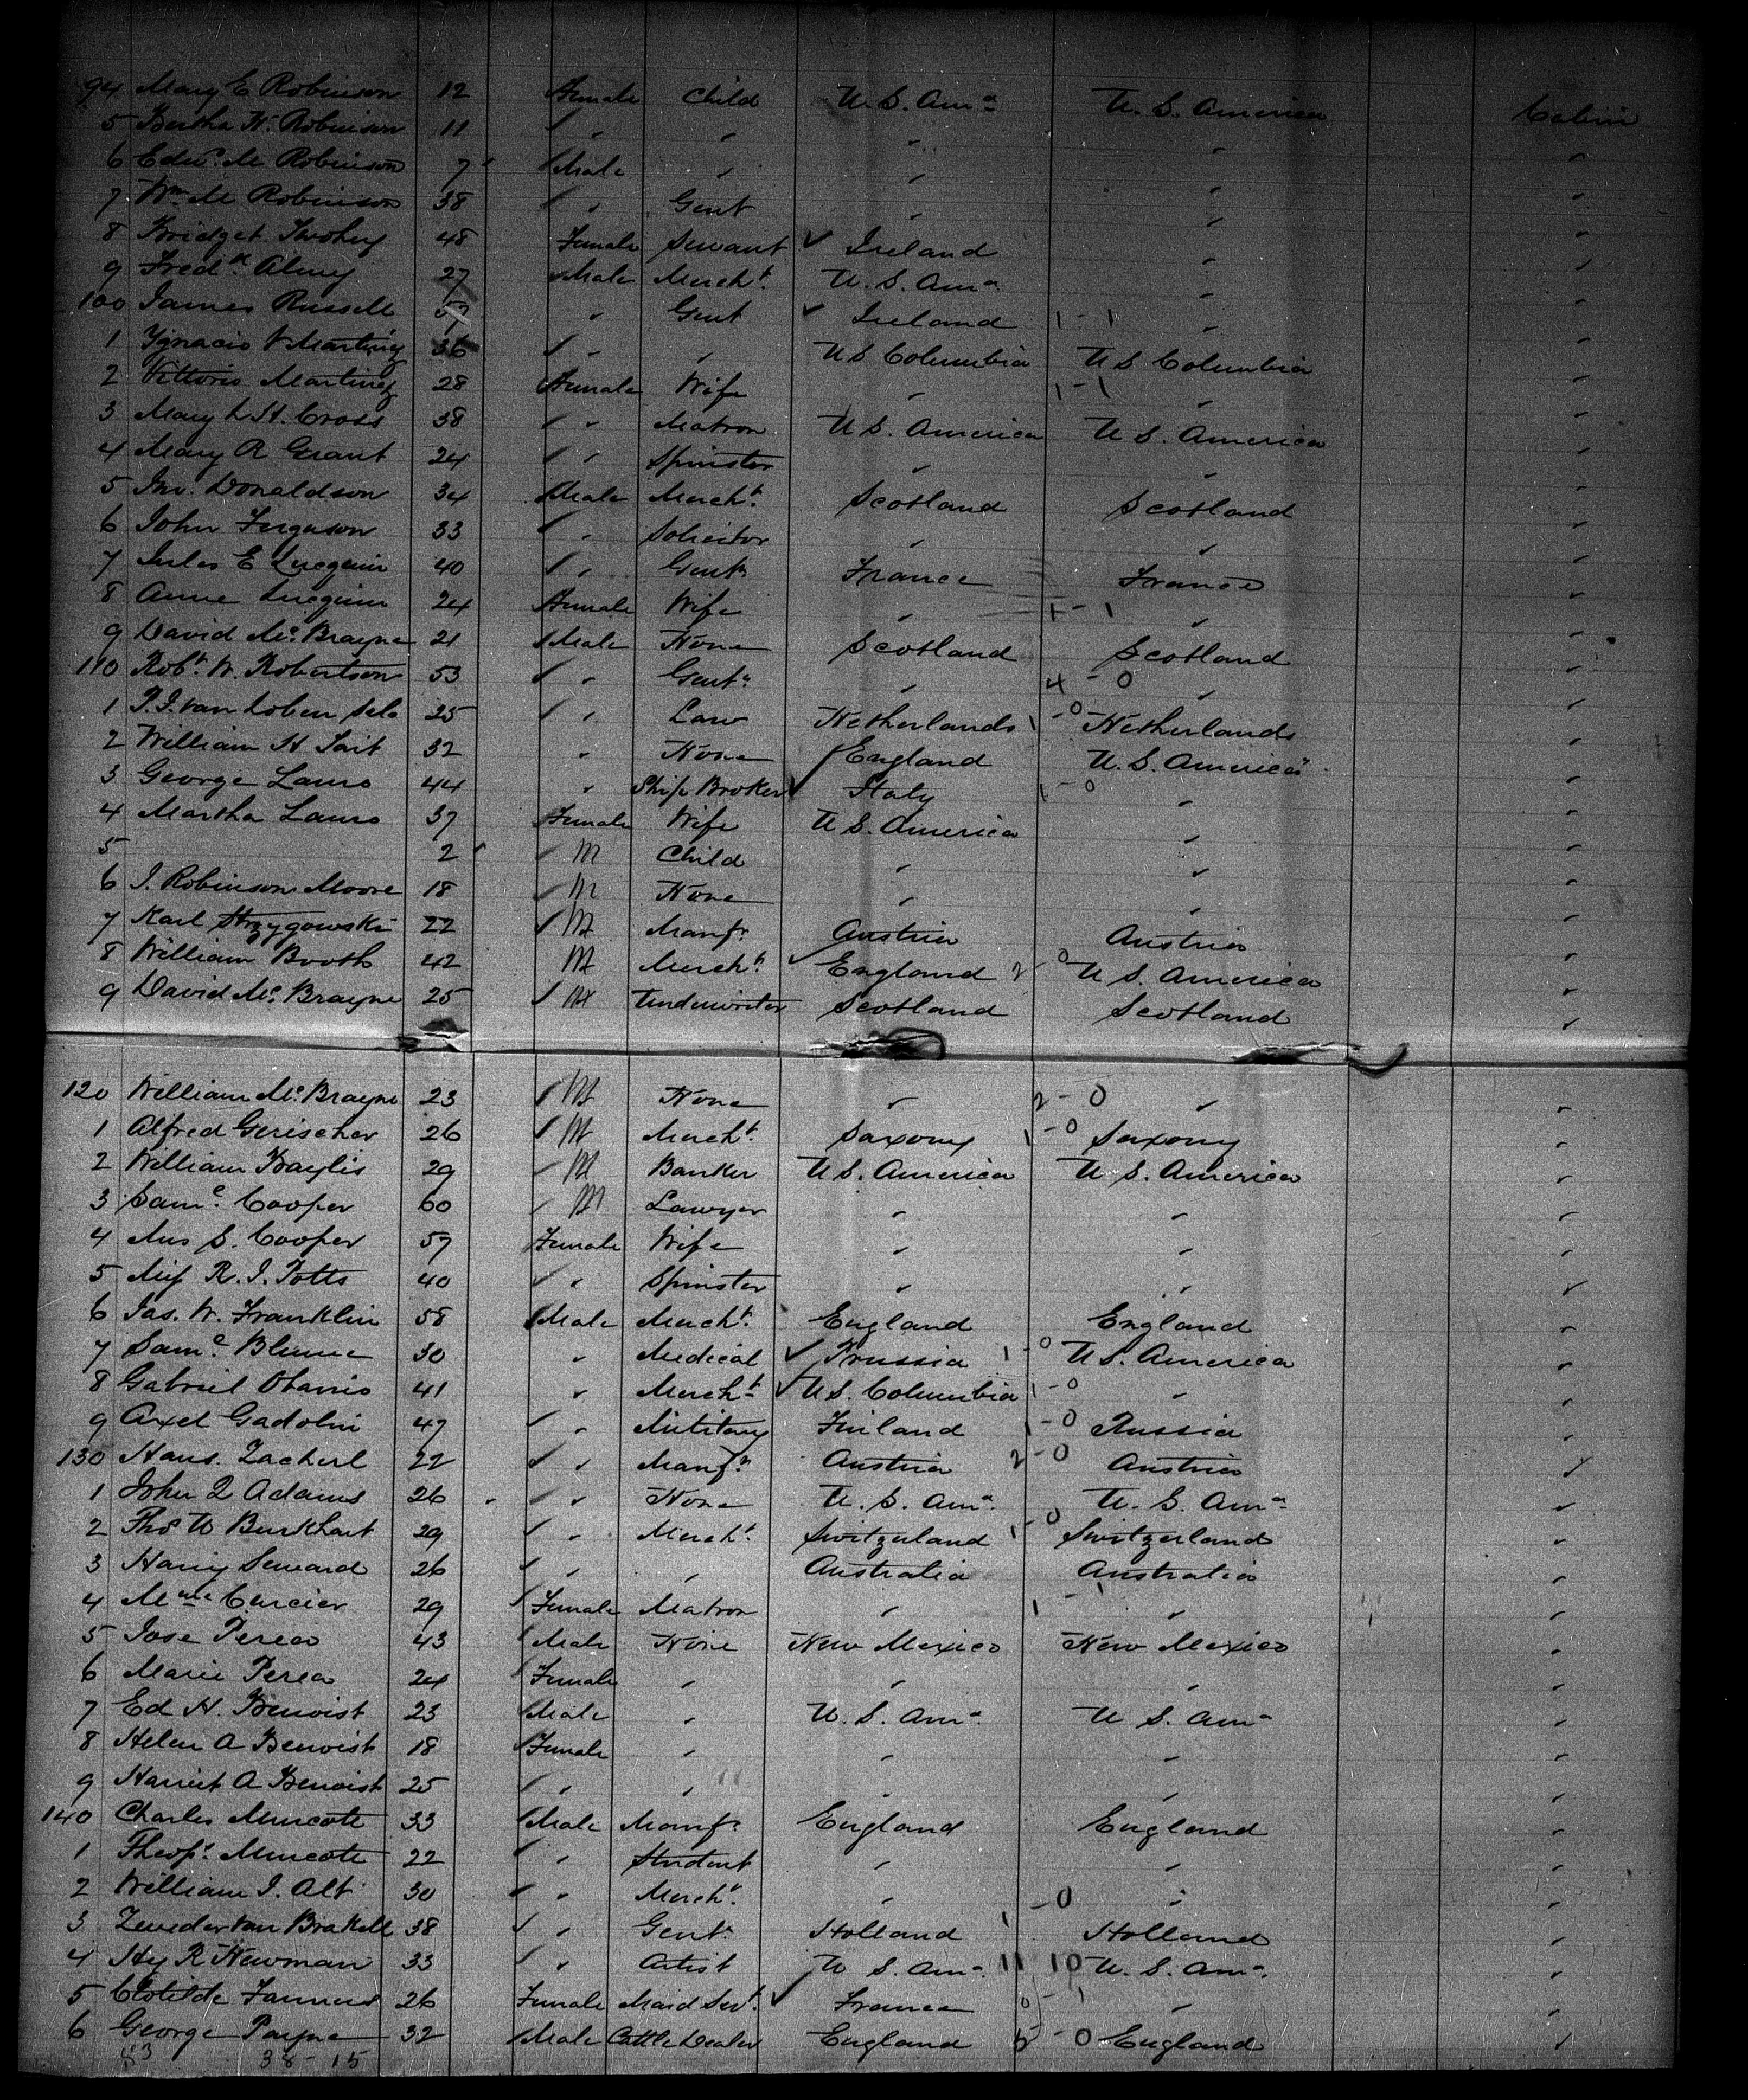 94 Mary E Robinson 12 Female Child U. S. Amª U. S. America Cabin
5 Bertha H. Robinson 11 " " " " "
6 Edwd. M Robinson 7 Male " " " "
7 Wm M Robinson 38 " Gent " " "
8 Bridget Twohey 48 Female Servant ✓ Ireland " "
9 Fredk Almy 27 Male Mercht. U. S. Amª " "
100 James Russell " Gent ✓ Ireland 1 - 1 " "
1 Ygnacio V Martinez 36 " " U S Columbia U S Columbia "
2 Vittoria Martinez 28 Female Wife " 1 - 1 " "
3 Mary L St. Cross 38 " Matron U S. America U S. America "
4 Mary R Grant 24 " Spinster " " "
5 Jno. Donaldson 34 Male Mercht. Scotland Scotland "
6 John Ferguson 33 " Solicitor " " "
7 Jules E 40 " Gent France France "
8 Anne 24 Female Wife " 1 - 1 " "
9 David Mc. Brayne 21 Male None Scotland Scotland "
110 Robt. W. Robertson 53 " Gent. " 4 - 0 " "
1 P. J. van Loben Sels 25 " Law Netherlands 1 - 0 Netherlands "
2 William H Tait 32 " None England U. S. America "
3 George Lauro 44 " Ship Broker ✓ Italy 1 - 0 " "
4 Martha Lauro 37 Female Wife U S. America " "
5 2 M Child " " "
6 J. Robinson Moore 18 M None " " "
7 Karl Strzygowski 22 M Manfr Austria Austria "
8 William Booth 42 M Mercht. ✓ England 2 0 U S. America "
9 David Mc. Brayne 25 M Underwriter Scotland Scotland "
120 William Mc. Brayne 23 M None " 2 - 0 " "
1 Alfred Gerischer 26 M Mercht. Saxony 1 - 0 Saxony "
2 William Baylis 29 M Banker U S. America U S. America "
3 Saml. Cooper 60 M Lawyer " " "
4 Mrs S. Cooper 57 Female Wife " " "
5 Miss R. J. Potts 40 " Spinster " " "
6 Jas. W. Franklin 58 Male Mercht. England England "
7 Saml. Blume 30 " Medical ✓ Prussia 1 - 0 U S. America "
8 Gabriel 41 " Mercht ✓ U S. Columbia 1 - 0 " "
9 Axel Gadolin 47 " Military Finland 1 - 0 Russia "
130 Hans. Zacherl 22 " Manfr. Austria 2 - 0 Austria "
1 John Q Adams 26 " None U. S. Amª U. S. Amª "
2 Thos W Burkhart 29 " Mercht. Switzerland 1 - 0 Switzerland "
3 Harry Seward 26 " " Australia Australia "
4 Mme Curcier 29 Female Matron " 1 - 1 " "
5 Jose Perea 43 Male None New Mexico New Mexico "
6 Marie Perea 24 Female " " " "
7 Ed H. Benoist 23 Male " U. S. Amª U S. Amª "
8 Helen A Benoist 18 Female " " " "
9 Harriet A Benoist 25 " " " " "
140 Charles Murcott 33 Male Manfr England England "
1 Theops. Murcott 22 " Student " " "
2 William J. Alt 30 " Mercht. " " "
3 Zuyder van Brakell 38 " Gent. Holland 1 - 0 Holland "
4 Hy R Newman 33 " Artist U S. Amª 11 10 U. S. Amª "
5 Clotilde 26 Female Maid Servt. ✓ France 0 - 1 " "
6 George Payne 32 Male Cattle Dealer England 5 - 0 England "
83 38 - 15